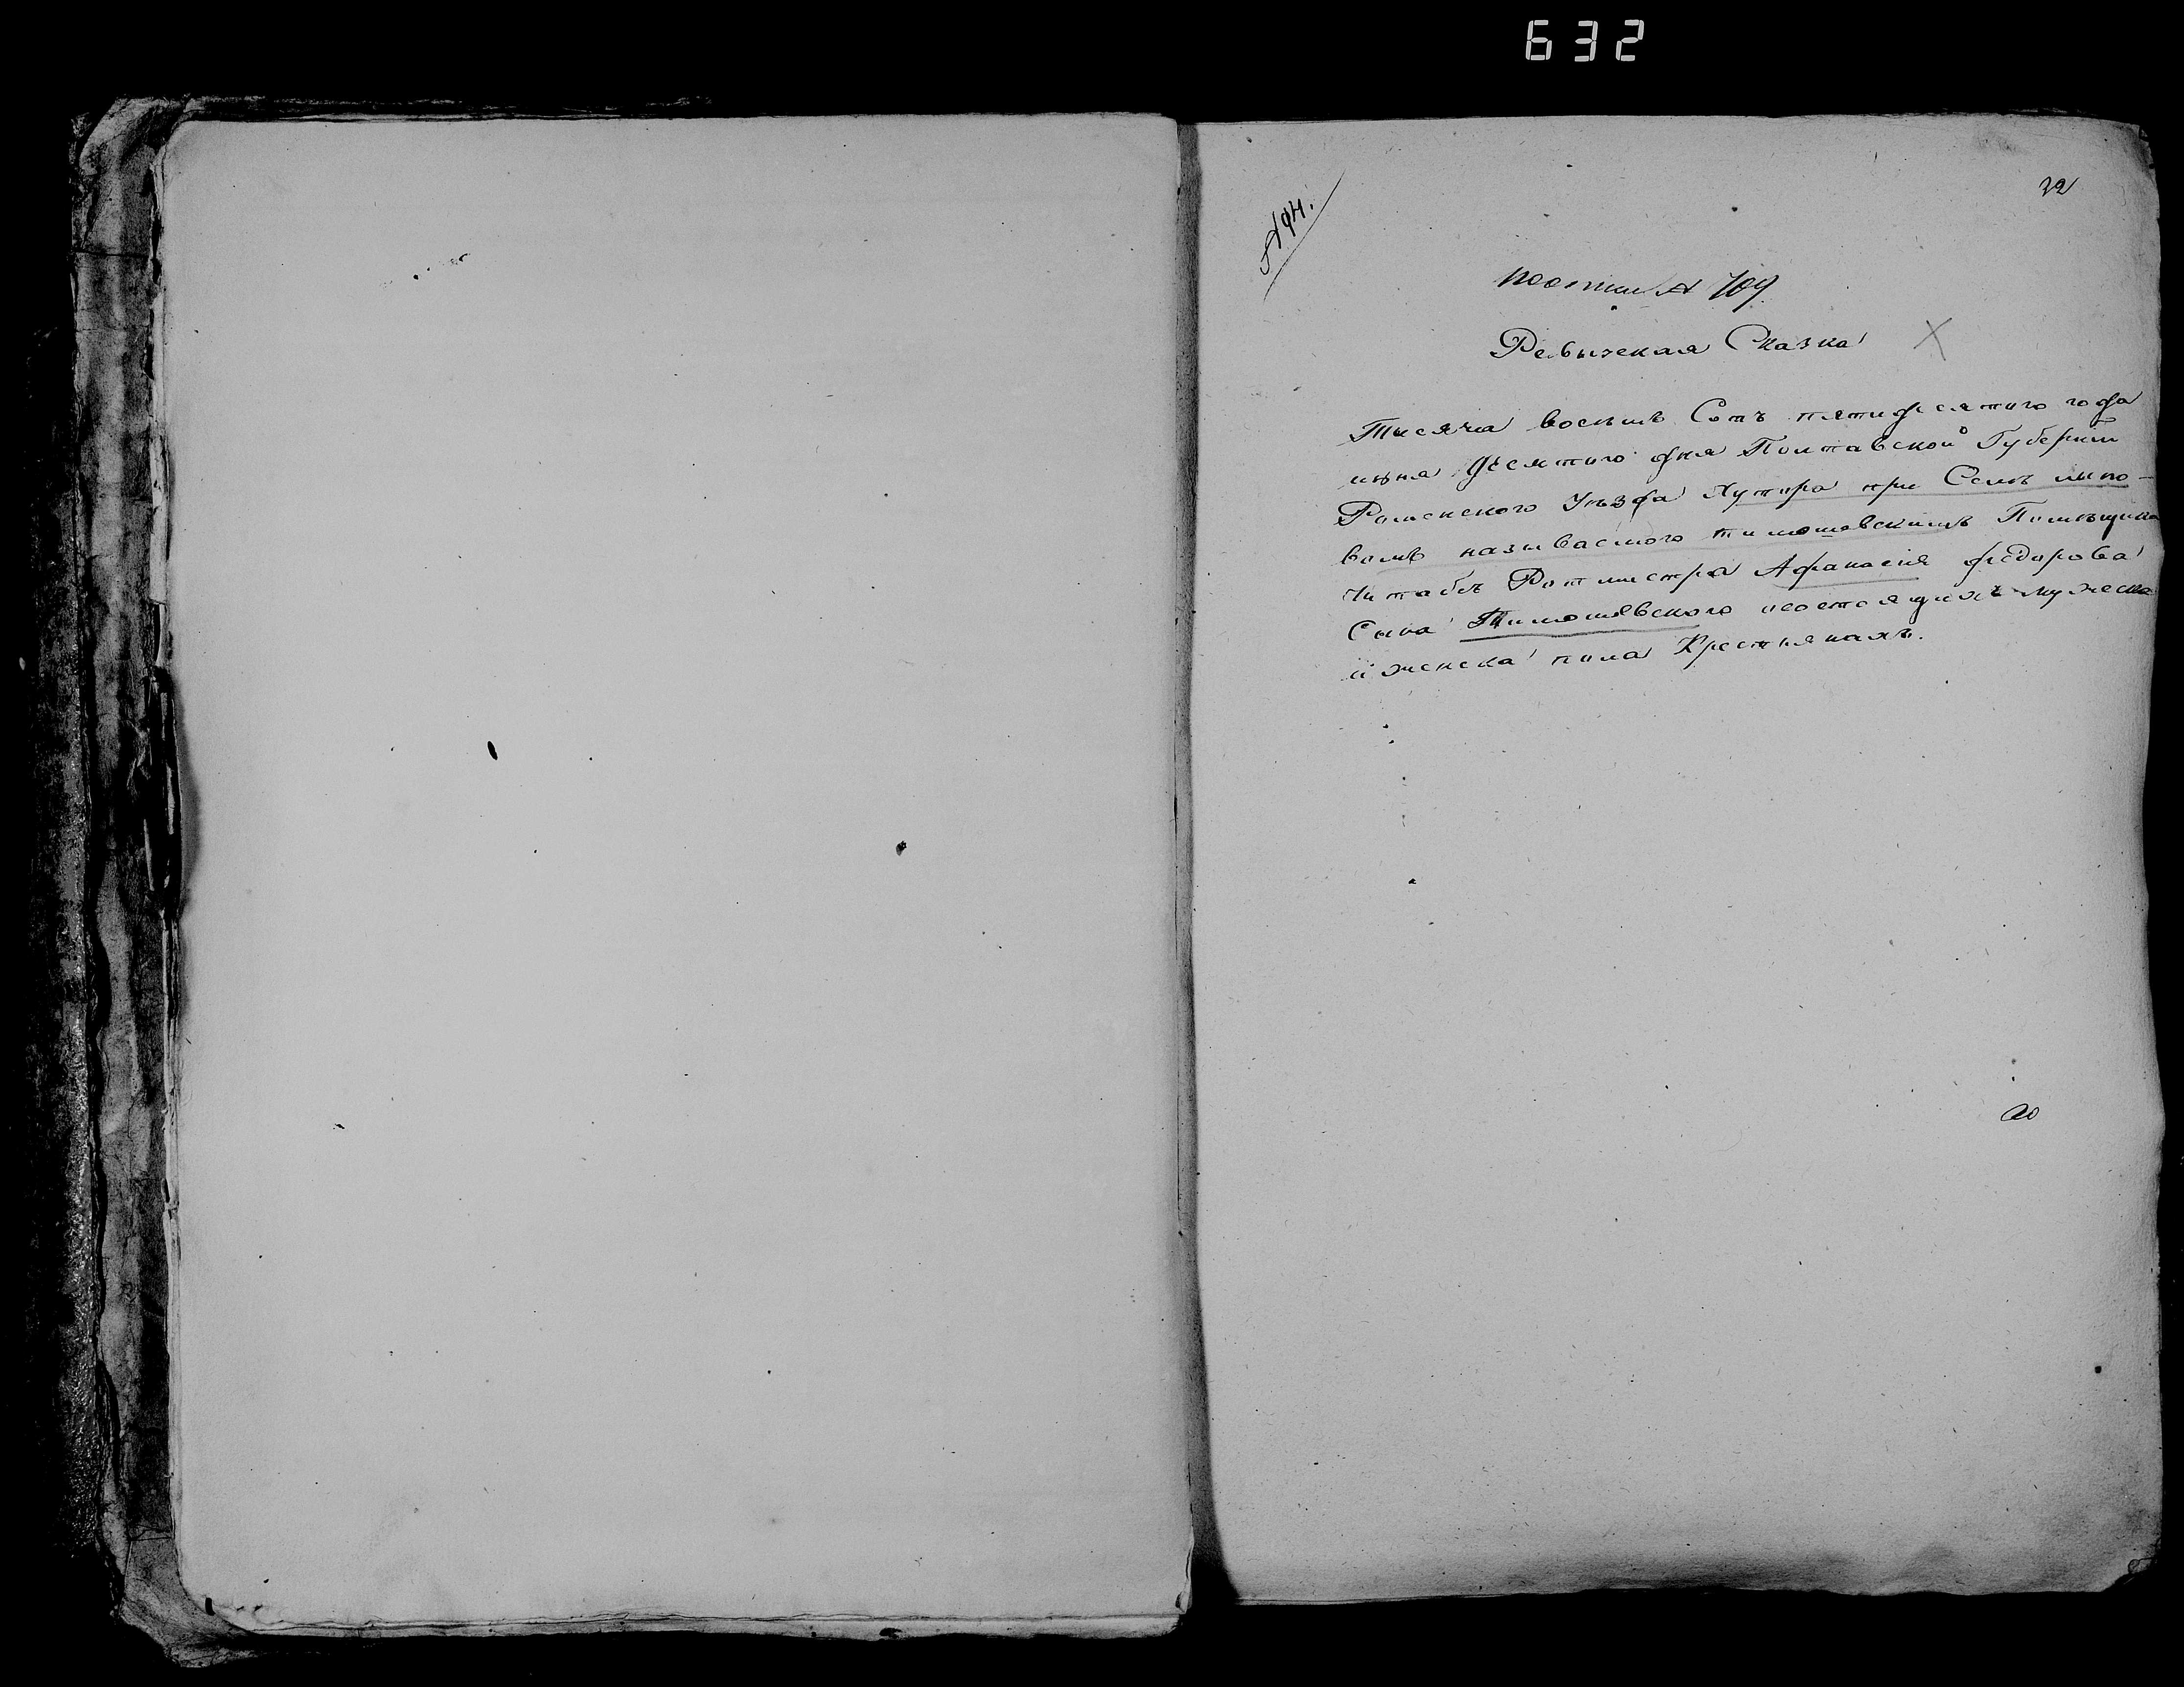 632
32
№ 94.
по описи № 709
Ревызская Сказка
Тисяча восемь Сотъ пятидесятого года
июня десятого дня Полтавской Губернии
Роменского Уезда Хутора при Селе липо-
вомъ називаемого тимошевскимъ Помещика
Штабъ Ротмистра Афанасия федорова
Сына Тимошевского о состоящихъ мужеска
и женска пола Крестьянахъ.